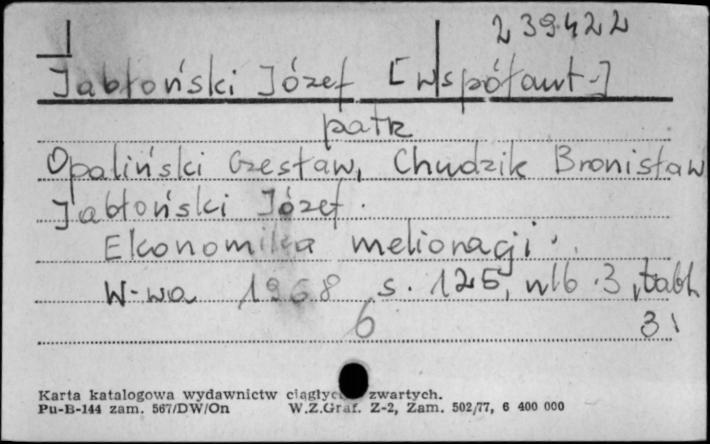 239422
Jabłoński Józef [współaut.]
patrz
Opaliński Czesław, Chudzik Bronisław
Jabłoński Józef.
Ekonomika melioracji.
W-wa 1968 s. 125, nlb. 3, tabl.
6 3.
Karta katalogowa wydawnictw ciągłych zwartych.
Pu-B-144 zam. 567/DW/On W.Z.Graf. Z-2, Zam. 502/77, 6 400 000